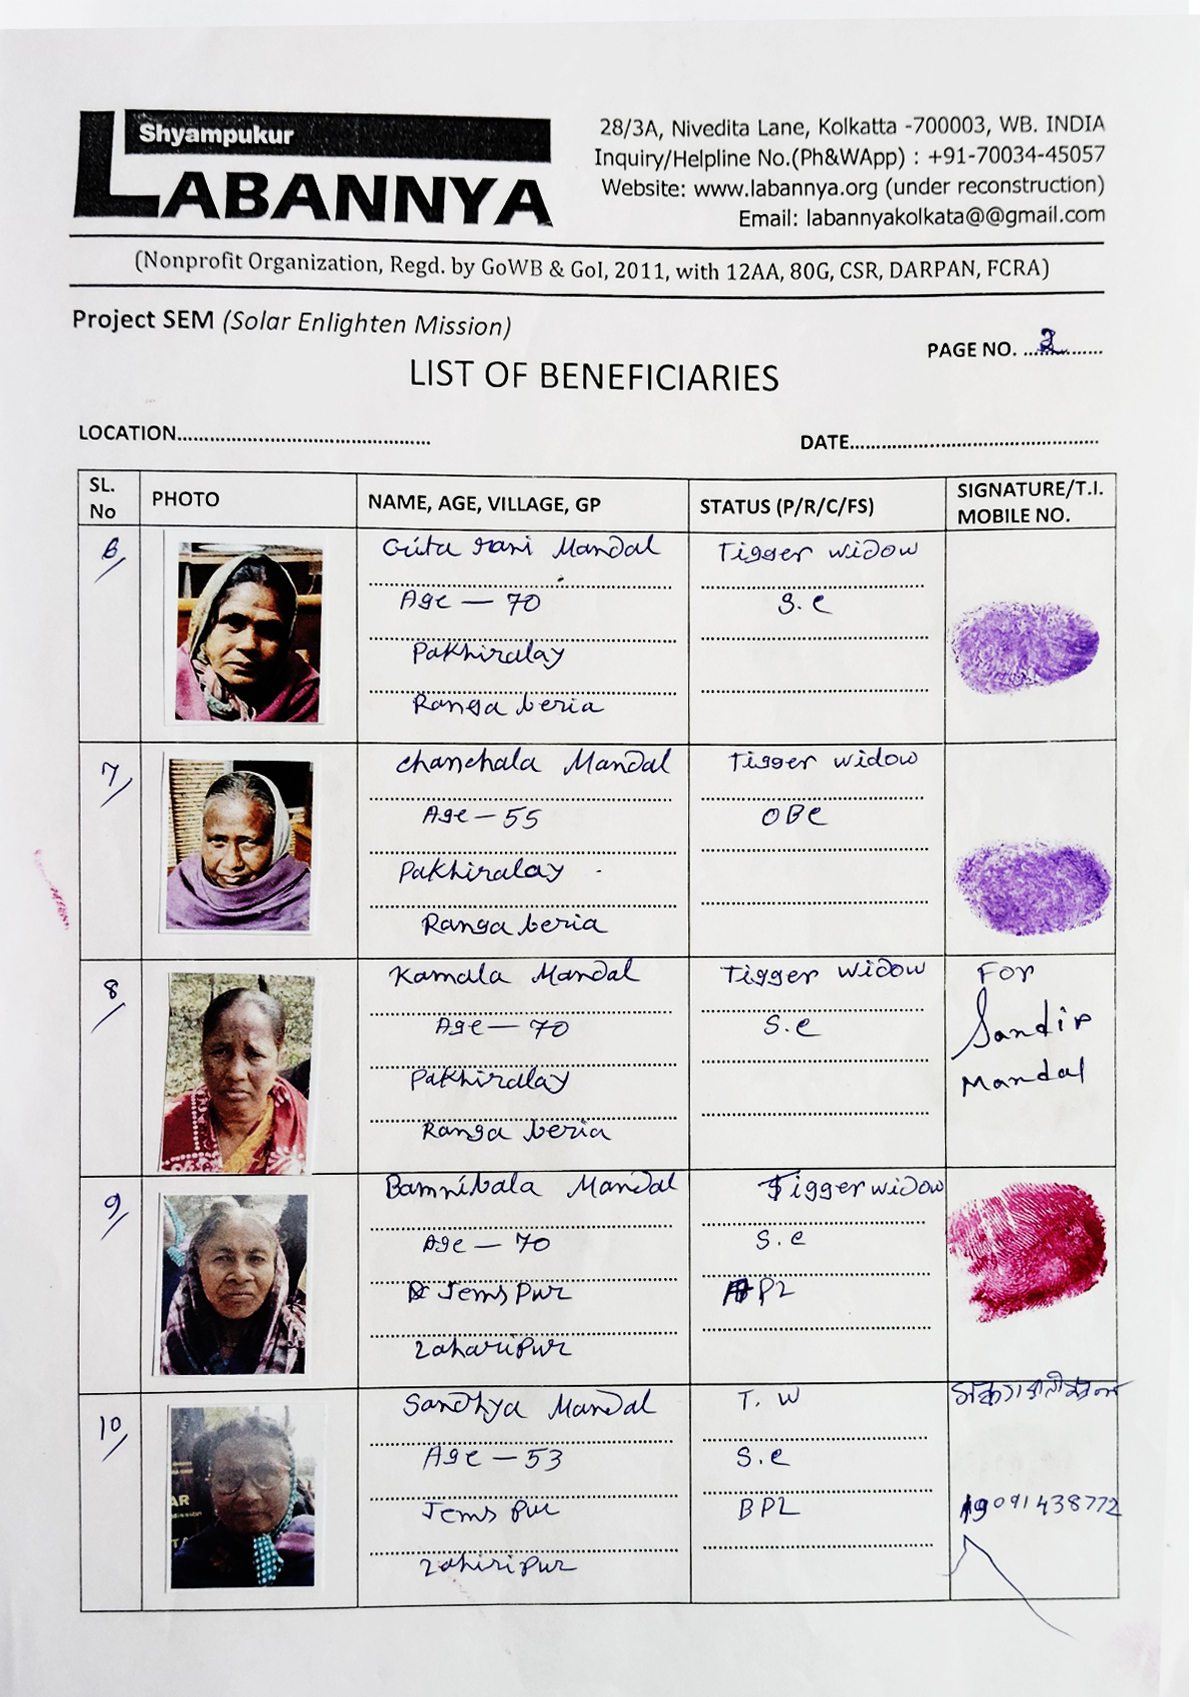 Shyampukur
LABANNYA
28/3A, Nivedita Lane, Kolkatta -700003, WB. INDIA
Inquiry/Helpline No.(Ph&WApp) : +91-70034-45057
Website: www.labannya.org (under reconstruction)
Email: labannyakolkata@@gmail.com
(Nonprofit Organization, Regd. by GoWB & GoI, 2011, with 12AA, 80G, CSR, DARPAN, FCRA)
Project SEM (Solar Enlighten Mission)
PAGE NO. 2
LIST OF BENEFICIARIES
LOCATION
DATE
SL. No PHOTO NAME, AGE, VILLAGE, GP STATUS (P/R/C/FS) SIGNATURE/T.I. MOBILE NO.
6/ Gita rani Mandal Tigger widow
Age — 70 S.C
Pakhiralay
Ranga beria
7/ Chanchala Mandal Tigger widow
Age — 55 OBC
Pakhiralay
Ranga beria
8/ Kamala Mandal Tigger widow For
Age — 70 S.C Sandip
Pakhiralay Mandal
Ranga beria
9/ Bamnibala Mandal Tigger widow
Age — 70 S.C
Jems pur BPL
Lahiripur
10/ Sandhya Mandal T. W
Age — 53 S.C
Jems pur BPL 9091438772
Lahiripur